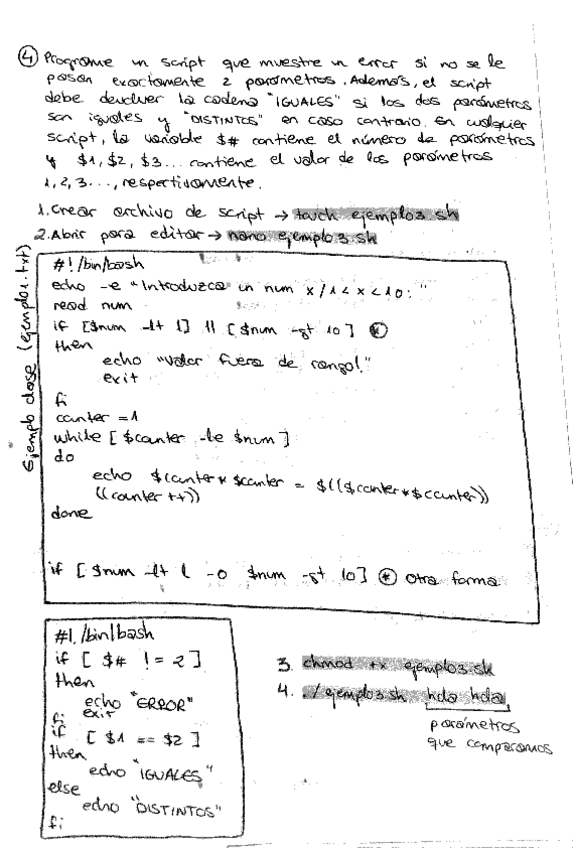 ④ Programe un script que muestre un error si no se le
pasan exactamente 2 parámetros. Además, el script
debe devolver la cadena "IGUALES" si los dos parámetros
son iguales y "DISTINTOS" en caso contrario. En cualquier
script, la variable $# contiene el número de parámetros
y $1, $2, $3... contiene el valor de los parámetros
1, 2, 3..., respectivamente.
1. Crear archivo de script → touch ejemplo3.sh
2. Abrir para editar → nano ejemplo3.sh
Ejemplo clase (ejemplo1.txt)
#!/bin/bash
echo -e "Introduzca un num x/1<x<10: "
read num
if [$num -lt 1] || [$num -gt 10] *
then
echo "Valor fuera de rango!"
exit
fi
counter =1
while [$counter -le $num]
do
echo $counter * $counter = $(($counter*$counter))
((counter++))
done
if [$num -lt 1 -o $num -gt 10] * otra forma
#!/bin/bash
if [ $# != 2 ]
then
echo "ERROR"
exit
fi
if [ $1 == $2 ]
then
echo "IGUALES"
else
echo "DISTINTOS"
fi
3. chmod +x ejemplo3.sh
4. ./ejemplo3.sh hola hola
parámetros
que comparamos